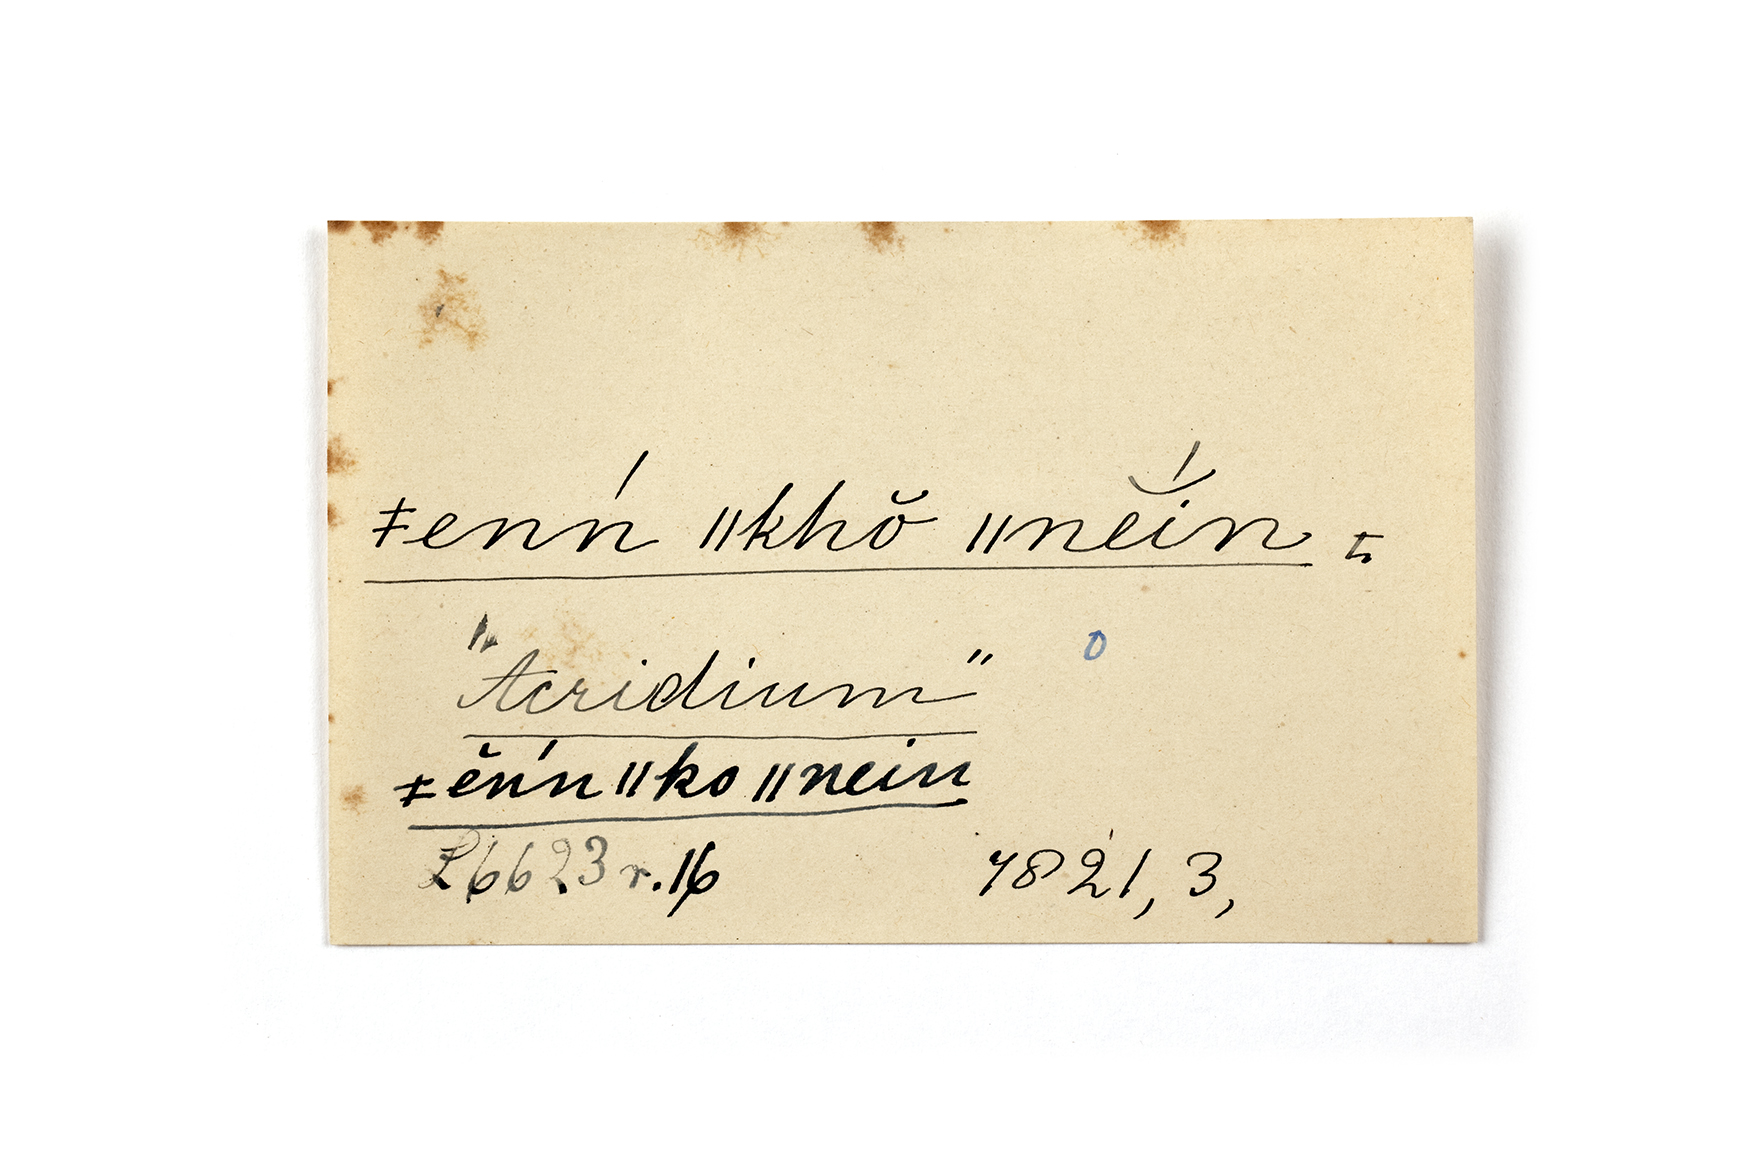 ǂenń ǁkhŏ ǁnĕ́in
"Acridium" 0
ǂĕńn ǁko ǁnein
L6623 r. 16 7821, 3,